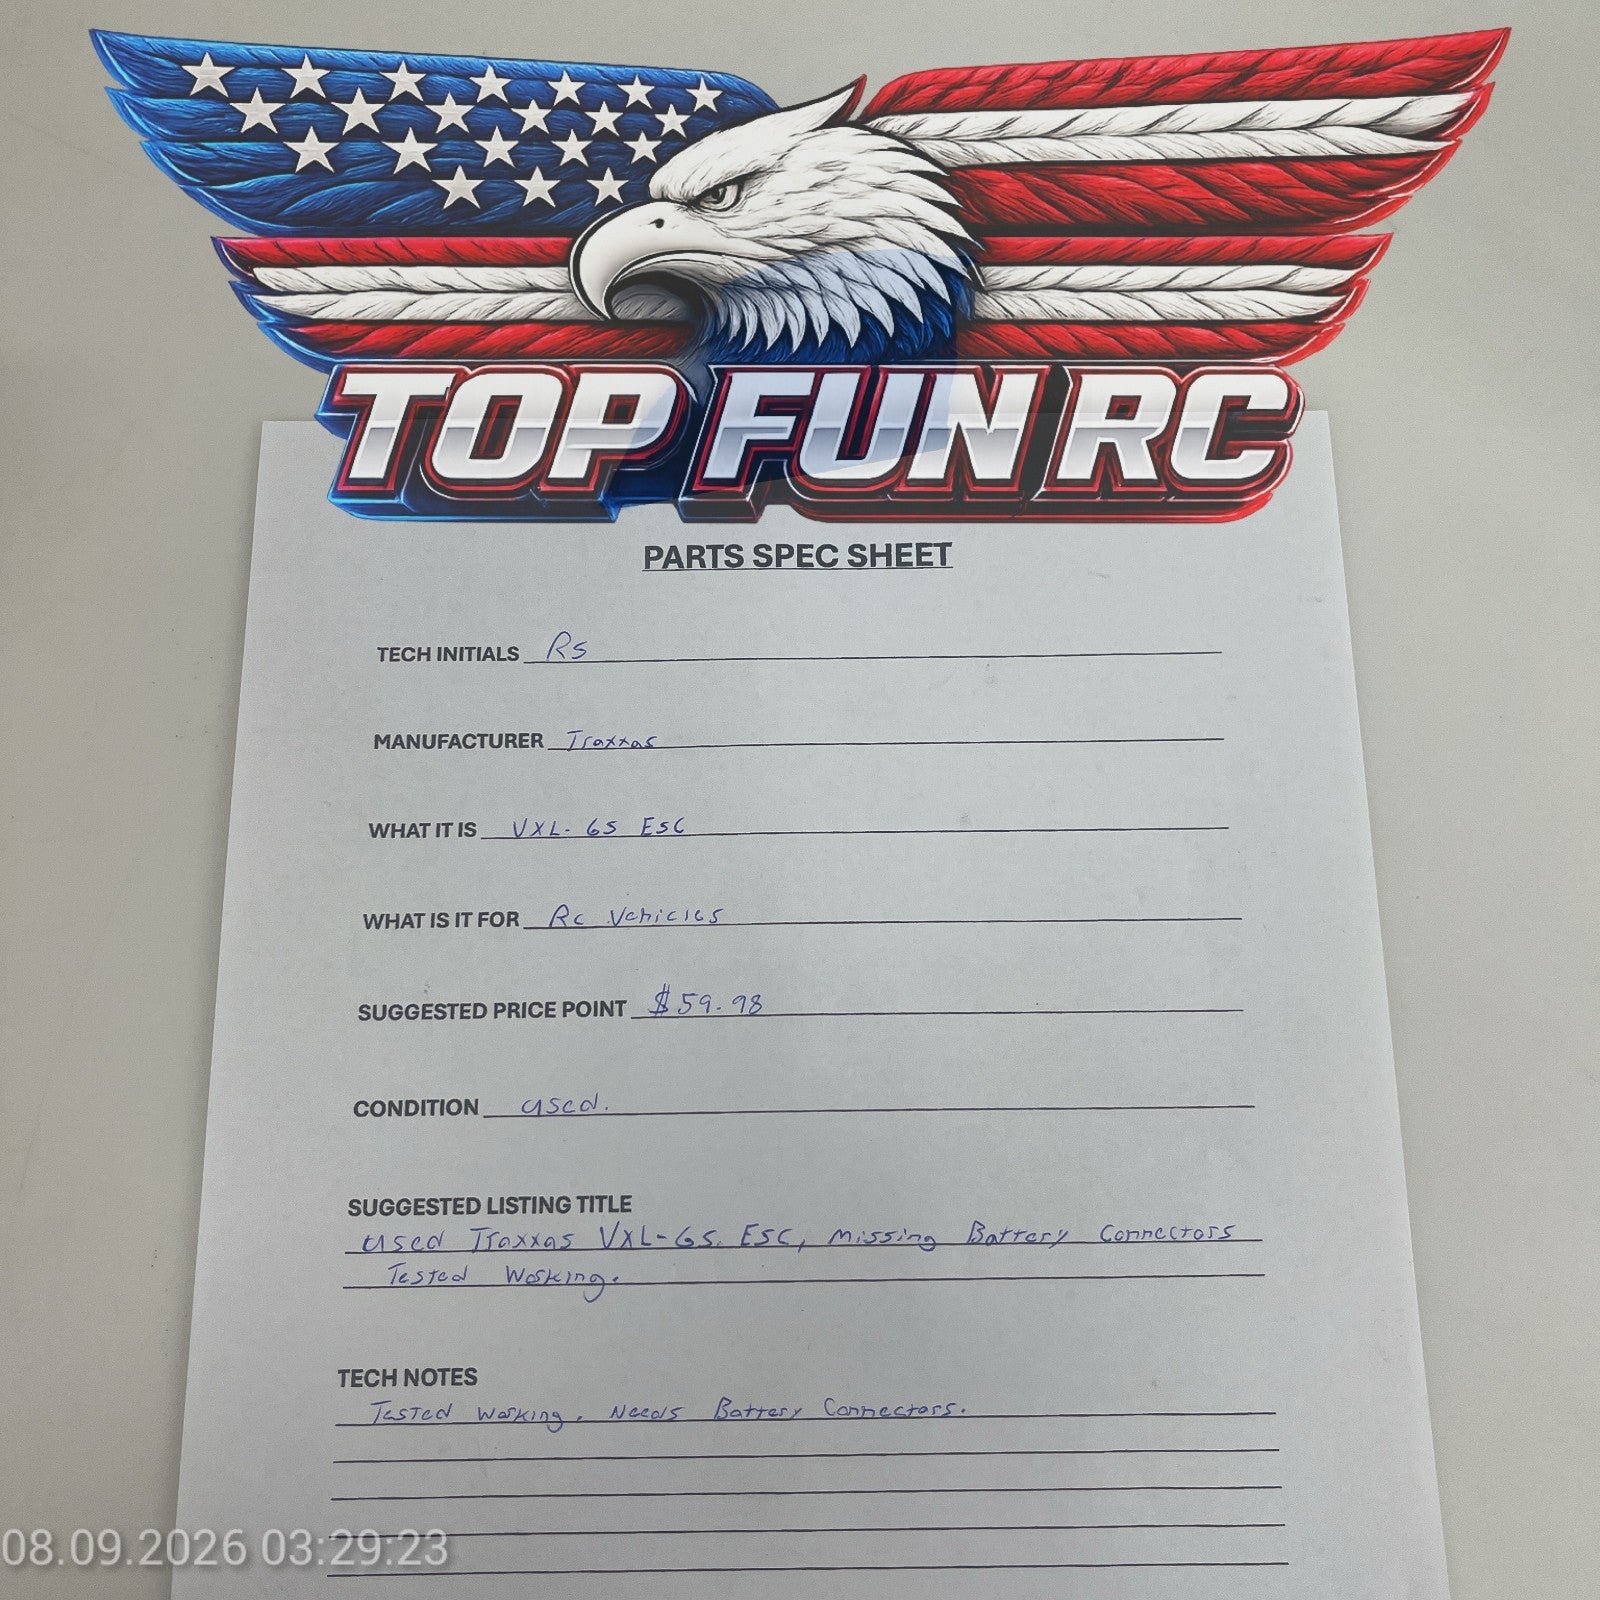 TOP FUN RC
PARTS SPEC SHEET
TECH INITIALS RS
MANUFACTURER Traxxas
WHAT IT IS VXL-6s ESC
WHAT IS IT FOR Rc Vehicles
SUGGESTED PRICE POINT $59.98
CONDITION used.
SUGGESTED LISTING TITLE
used Traxxas VXL-6s. ESC, Missing Battery Connectors
Tested Working.
TECH NOTES
Tested Working. Needs Battery Connectors.
08.09.2026 03:29:23